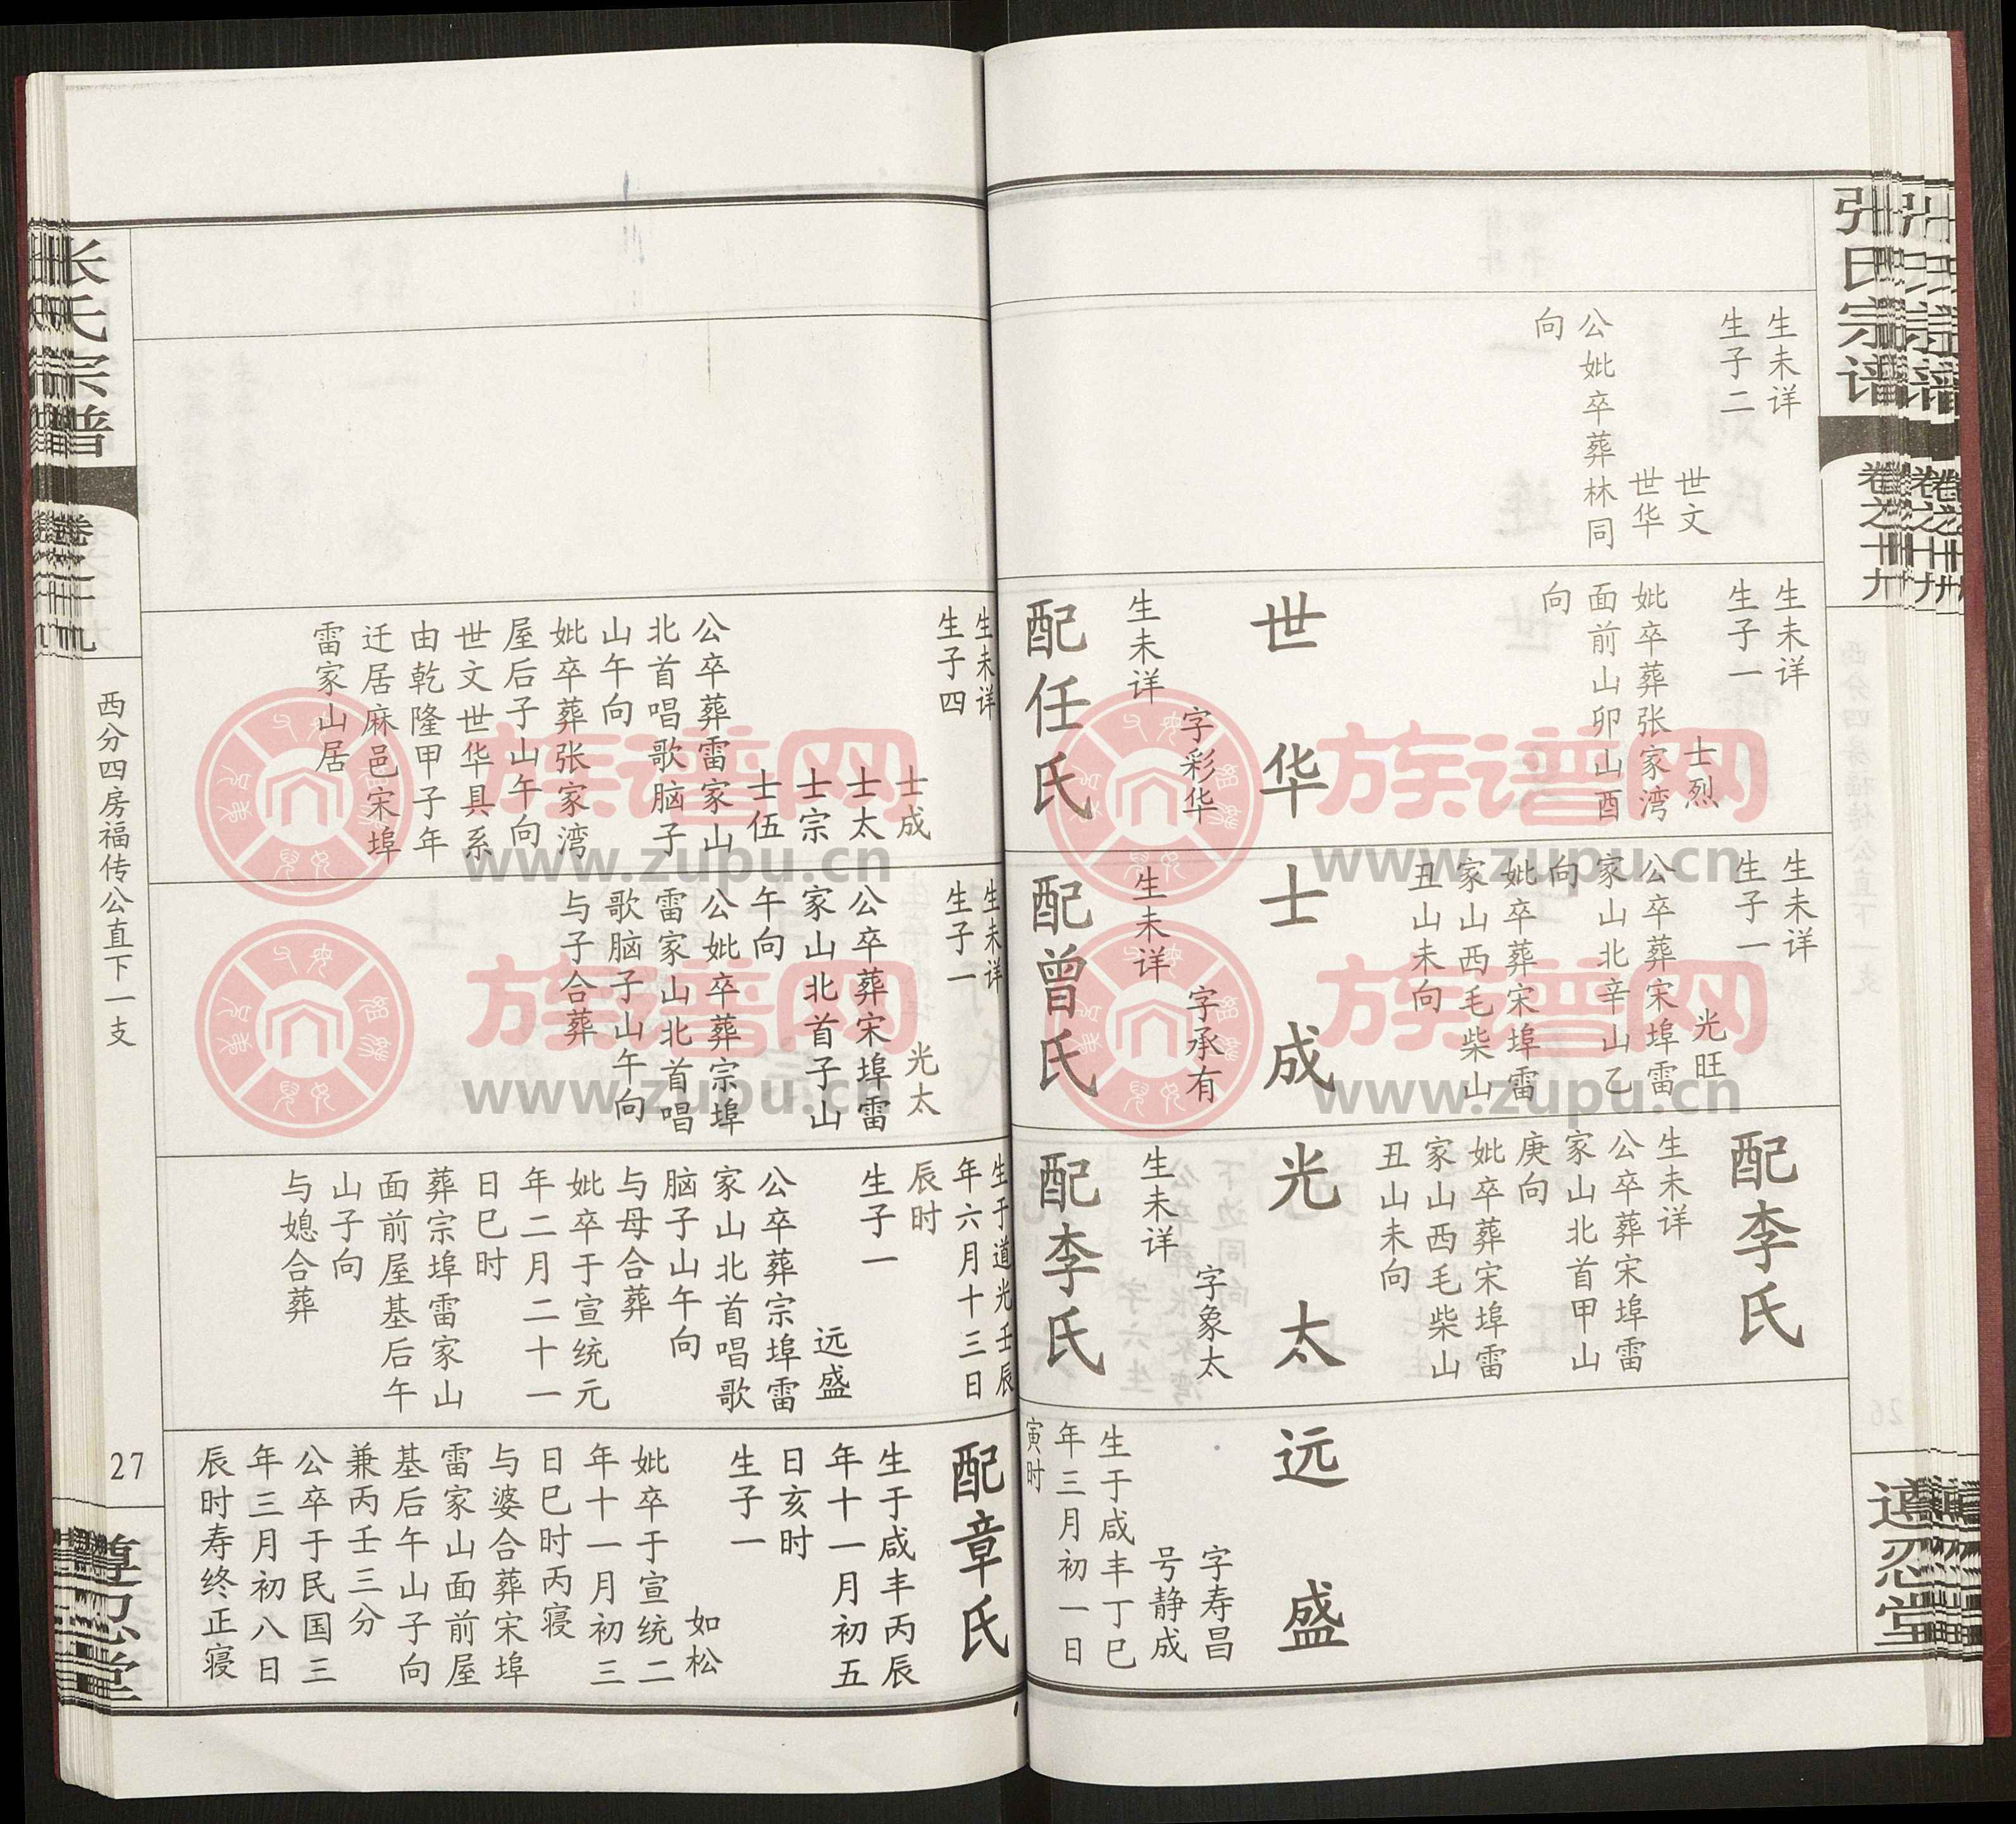 张氏宗谱
卷之十九
遵忍堂
生未详
生子二
世文
世华
公妣卒葬林同
向
生未详
生子一
士烈
妣卒葬张家湾
面前山卯山酉
向
世华
字彩华
生未详
配任氏
生未详
生子一
光旺
公卒葬宋埠雷
家山北辛山乙
向
妣卒葬宋埠雷
家山西毛柴山
丑山未向
士成
字承有
生未详
配曾氏
配李氏
生未详
公卒葬宋埠雷
家山北首甲山
庚向
妣卒葬宋埠雷
家山西毛柴山
丑山未向
光太
字象太
生未详
配李氏
远盛
字寿昌
号静成
生于咸丰丁巳
年三月初一日
寅时
生未详
生子四
士成
士太
士宗
士伍
公卒葬雷家山
北首唱歌脑子
山午向
妣卒葬张家湾
屋后子山午向
世文世华具系
由乾隆甲子年
迁居麻邑宋埠
雷家山居
生未详
生子一
光太
公卒葬宋埠雷
家山北首子山
午向
公妣卒葬宗埠
雷家山北首唱
歌脑子山午向
与子合葬
生于道光壬辰
年六月十三日
辰时
生子一
远盛
公卒葬宗埠雷
家山北首唱歌
脑子山午向
与母合葬
妣卒于宣统元
年二月二十一
日巳时
葬宗埠雷家山
面前屋基后午
山子向
与媳合葬
配章氏
生于咸丰丙辰
年十一月初五
日亥时
生子一
如松
妣卒于宣统二
年十一月初三
日巳时丙寝
与婆合葬宋埠
雷家山面前屋
基后午山子向
兼丙壬三分
公卒于民国三
年三月初八日
辰时寿终正寝
张氏宗谱
卷之十九
西分四房福传公直下一支
27
族谱网
www.zupu.cn
族谱网
www.zupu.cn
族谱网
www.zupu.cn
族谱网
www.zupu.cn